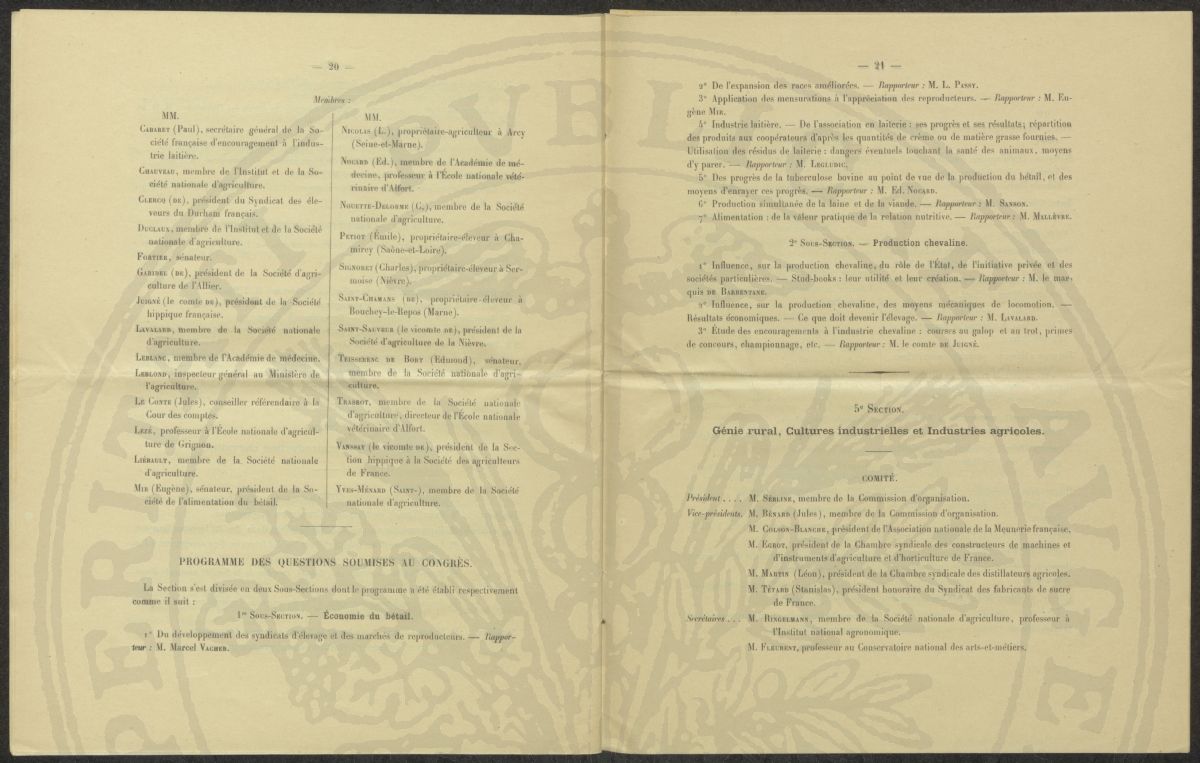 — 20 —
Membres :
MM.
Cabaret (Paul), secrétaire général de la So-
ciété française d'encouragement à l'indus-
trie laitière.
Chauveau, membre de l'Institut et de la So-
ciété nationale d'agriculture.
Clercq (de), président du Syndicat des éle-
veurs du Durham français.
Duclaux, membre de l'Institut et de la Société
nationale d'agriculture.
Fortier, sénateur.
Garidel (de), président de la Société d'agri-
culture de l'Allier.
Juigné (le comte de), président de la Société
hippique française.
Lavalard, membre de la Société nationale
d'agriculture.
Leblanc, membre de l'Académie de médecine.
Leblond, inspecteur général au Ministère de
l'agriculture.
Le Conte (Jules), conseiller référendaire à la
Cour des comptes.
Lezé, professeur à l'École nationale d'agricul-
ture de Grignon.
Liébault, membre de la Société nationale
d'agriculture.
Mir (Eugène), sénateur, président de la So-
ciété de l'alimentation du bétail.
MM.
Nicolas (L.), propriétaire-agriculteur à Arcy
(Seine-et-Marne).
Nocard (Ed.), membre de l'Académie de mé-
decine, professeur à l'École nationale vété-
rinaire d'Alfort.
Nouette-Delorme (G.), membre de la Société
nationale d'agriculture.
Petiot (Émile), propriétaire-éleveur à Cha-
mirey (Saône-et-Loire).
Signoret (Charles), propriétaire-éleveur à Ser-
moise (Nièvre).
Saint-Chamans (de), propriétaire-éleveur à
Bouchey-le-Repos (Marne).
Saint-Sauveur (le vicomte de), président de la
Société d'agriculture de la Nièvre.
Teisserenc de Bort (Edmond), sénateur,
membre de la Société nationale d'agri-
culture.
Trasbot, membre de la Société nationale
d'agriculture, directeur de l'École nationale
vétérinaire d'Alfort.
Vanssay (le vicomte de), président de la Sec-
tion hippique à la Société des agriculteurs
de France.
Yves-Ménard (Saint-), membre de la Société
nationale d'agriculture.
PROGRAMME DES QUESTIONS SOUMISES AU CONGRÈS.
La Section s'est divisée en deux Sous-Sections dont le programme a été établi respectivement
comme il suit :
1re Sous-Section. — Économie du bétail.
1° Du développement des syndicats d'élevage et des marchés de reproducteurs. — Rappor-
teur : M. Marcel Vacher.
— 21 —
2° De l'expansion des races améliorées. — Rapporteur : M. L. Passy.
3° Application des mensurations à l'appréciation des reproducteurs. — Rapporteur : M. Eu-
gène Mir.
4° Industrie laitière. — De l'association en laiterie : ses progrès et ses résultats; répartition
des produits aux coopérateurs d'après les quantités de crème ou de matière grasse fournies. —
Utilisation des résidus de laiterie : dangers éventuels touchant la santé des animaux, moyens
d'y parer. — Rapporteur : M. Legludic.
5° Des progrès de la tuberculose bovine au point de vue de la production du bétail, et des
moyens d'enrayer ces progrès. — Rapporteur : M. Ed. Nocard.
6° Production simultanée de la laine et de la viande. — Rapporteur : M. Sanson.
7° Alimentation : de la valeur pratique de la relation nutritive. — Rapporteur : M. Mallèvre.
2e Sous-Section. — Production chevaline.
1° Influence, sur la production chevaline, du rôle de l'État, de l'initiative privée et des
sociétés particulières. — Stud-books : leur utilité et leur création. — Rapporteur : M. le mar-
quis de Barbentane.
2° Influence, sur la production chevaline, des moyens mécaniques de locomotion. —
Résultats économiques. — Ce que doit devenir l'élevage. — Rapporteur : M. Lavalard.
3° Étude des encouragements à l'industrie chevaline : courses au galop et au trot, primes
de concours, championnage, etc. — Rapporteur : M. le comte de Juigné.
5e Section.
Génie rural, Cultures industrielles et Industries agricoles.
COMITÉ.
Président . . . . M. Sébline, membre de la Commission d'organisation.
Vice-présidents. M. Bénard (Jules), membre de la Commission d'organisation.
M. Colson-Blanche, président de l'Association nationale de la Meunerie française.
M. Egrot, président de la Chambre syndicale des constructeurs de machines et
d'instruments d'agriculture et d'horticulture de France.
M. Martin (Léon), président de la Chambre syndicale des distillateurs agricoles.
M. Tétard (Stanislas), président honoraire du Syndicat des fabricants de sucre
de France.
Secrétaires . . . M. Ringelmann, membre de la Société nationale d'agriculture, professeur à
l'Institut national agronomique.
M. Fleurent, professeur au Conservatoire national des arts-et-métiers.